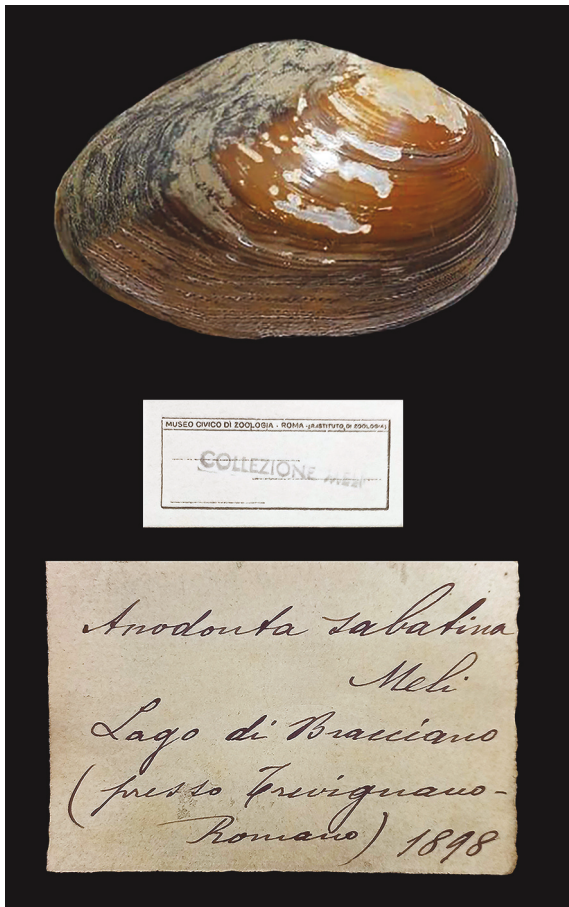 MUSEO CIVICO DI ZOOLOGIA - ROMA - (R. ISTITUTO DI ZOOLOGIA)
COLLEZIONE MELI
Anodonta sabatina
Meli
Lago di Bracciano
(presso Trevignano-
Romano) 1898